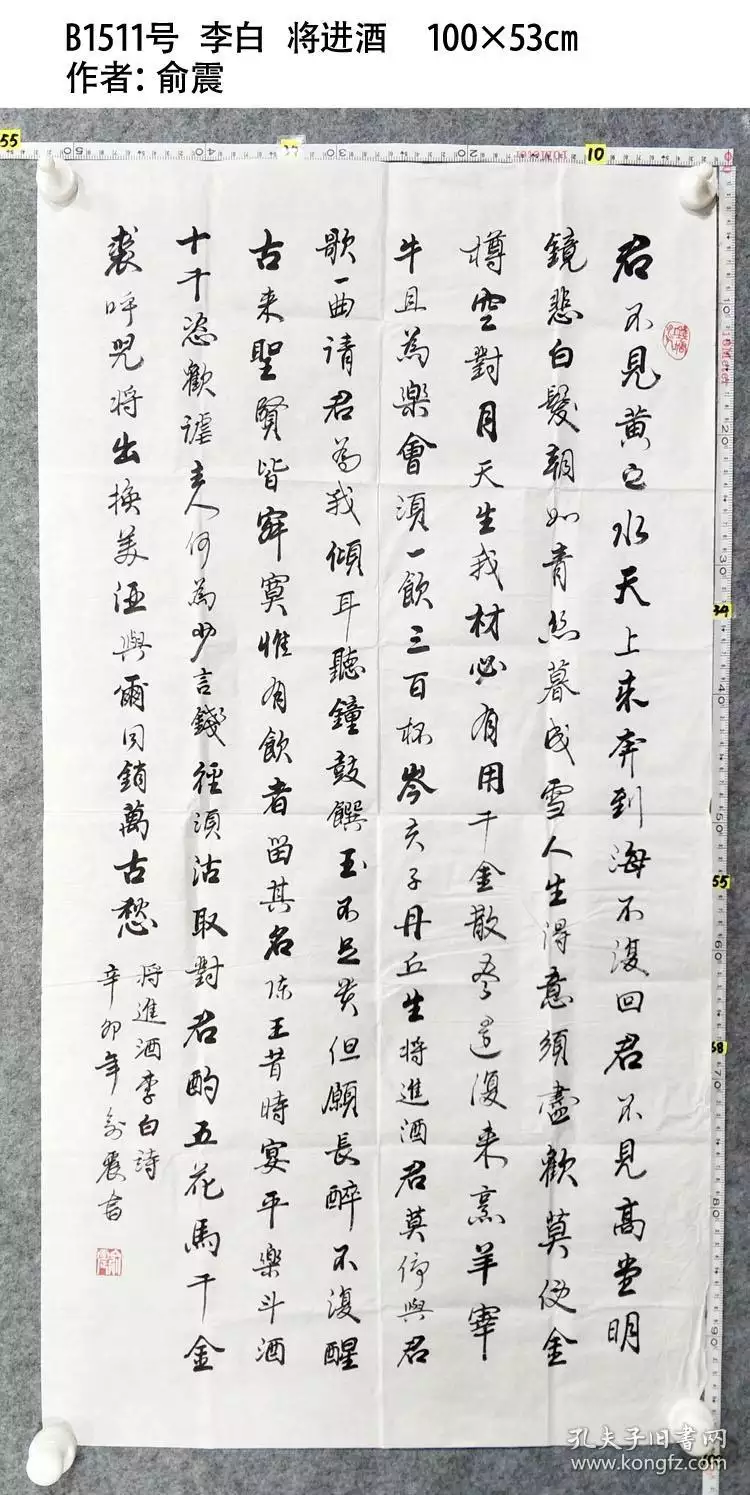 B1511号 李白 将进酒 100×53cm
作者：俞震
君不見黄之水天上来奔到海不復回君不見高堂明
鏡悲白髮朝如青絲暮成雪人生得意須盡歡莫使金
樽空對月天生我材必有用千金散盡還復来烹羊宰
牛且為樂會須一飲三百杯岑夫子丹丘生將進酒君莫停與君
歌一曲請君為我傾耳聽鐘鼓饌玉不足貴但願長醉不復醒
古来聖賢皆寂寞惟有飲者留其名陈王昔時宴平樂斗酒
十千恣歡謔主人何為少言錢徑須沽取對君酌五花馬千金
裘呼兒将出換美酒與爾同銷萬古愁
将進酒李白詩
辛卯年俞震書
孔夫子旧书网
www.kongfz.com